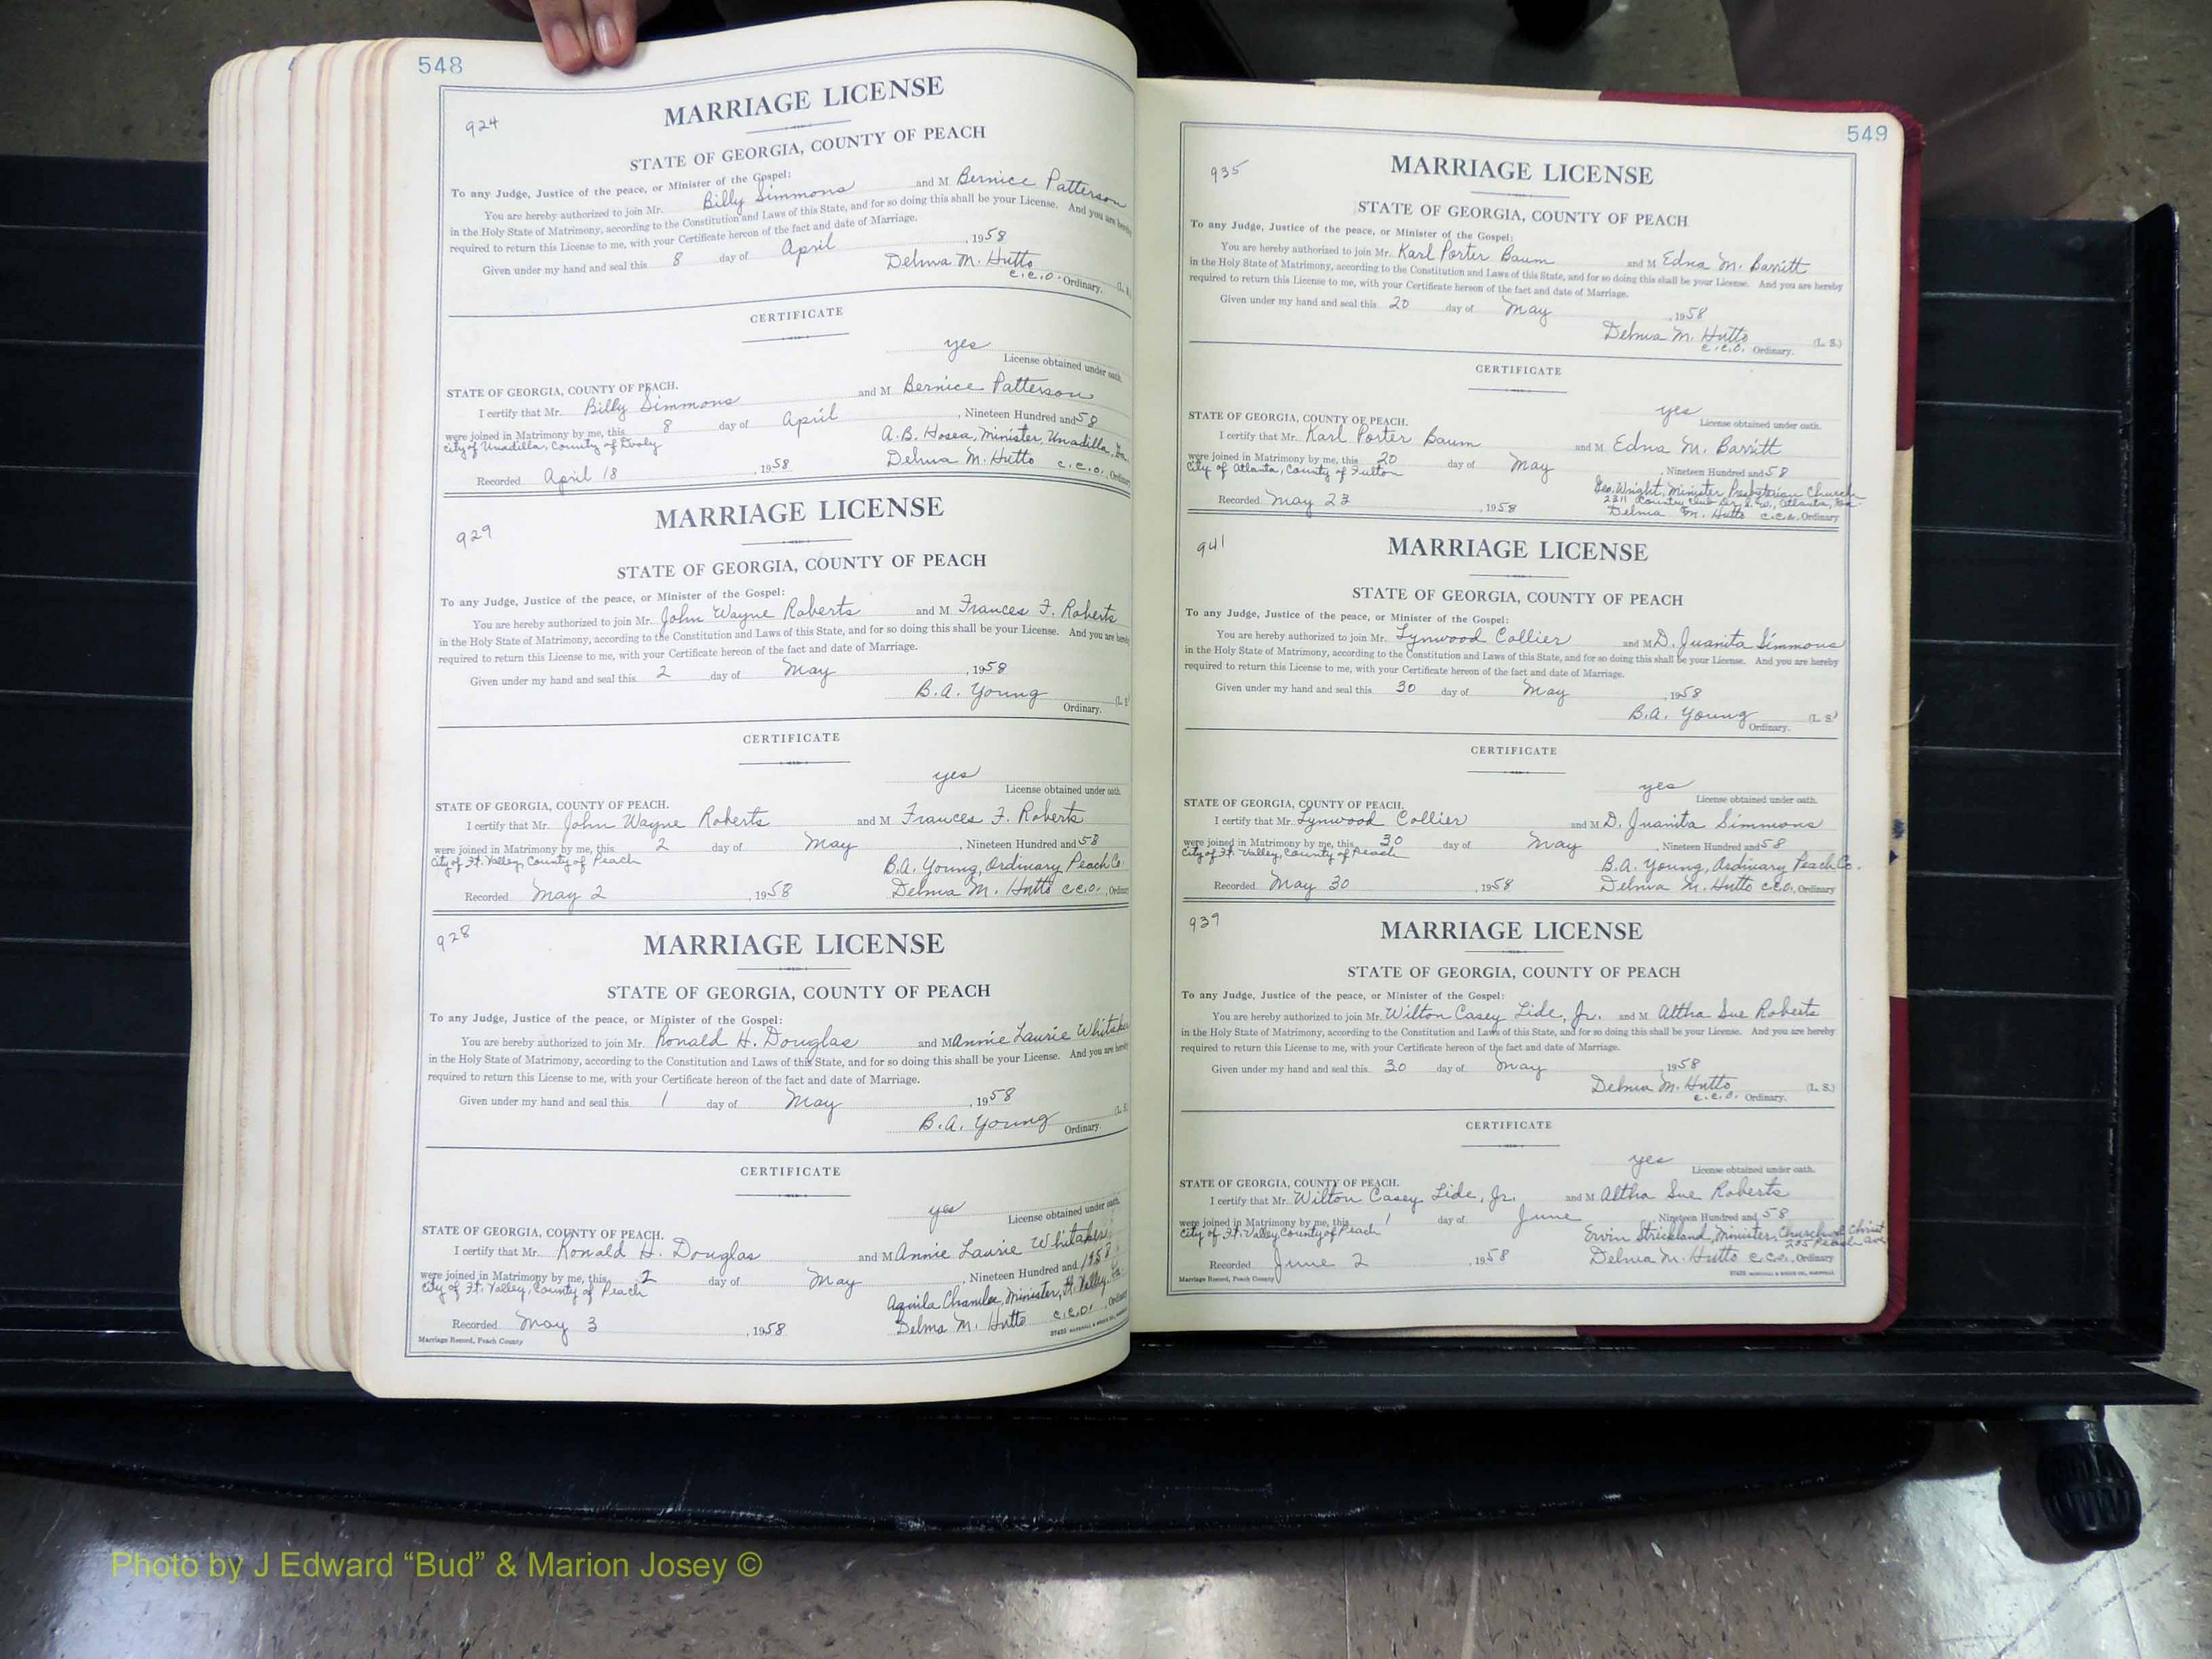 548
924
MARRIAGE LICENSE
STATE OF GEORGIA, COUNTY OF PEACH
To any Judge, Justice of the peace, or Minister of the Gospel:
You are hereby authorized to join Mr. Billy Simmons and M Bernice Patterson
in the Holy State of Matrimony, according to the Constitution and Laws of this State, and for so doing this shall be your License. And you are hereby
required to return this License to me, with your Certificate hereon of the fact and date of Marriage.
Given under my hand and seal this 8 day of April, 1958
Delma M. Hutto
C.C.O. Ordinary. (L. S.
CERTIFICATE
yes
License obtained under oath.
STATE OF GEORGIA, COUNTY OF PEACH.
I certify that Mr. Billy Simmons and M Bernice Patterson
were joined in Matrimony by me, this 8 day of April, Nineteen Hundred and 58
City of Unadilla, County of Dooly A.B. Hosea, Minister, Unadilla, Ga.
Recorded April 18, 1958 Delma M. Hutto C.C.O., Ordinary
929
MARRIAGE LICENSE
STATE OF GEORGIA, COUNTY OF PEACH
To any Judge, Justice of the peace, or Minister of the Gospel:
You are hereby authorized to join Mr. John Wayne Roberts and M Frances F. Roberts
in the Holy State of Matrimony, according to the Constitution and Laws of this State, and for so doing this shall be your License. And you are hereby
required to return this License to me, with your Certificate hereon of the fact and date of Marriage.
Given under my hand and seal this 2 day of May, 1958
B.A. Young (L. S
Ordinary.
CERTIFICATE
yes
License obtained under oath.
STATE OF GEORGIA, COUNTY OF PEACH.
I certify that Mr. John Wayne Roberts and M Frances F. Roberts
were joined in Matrimony by me, this 2 day of May, Nineteen Hundred and 58
City of Ft. Valley, County of Peach B.A. Young, Ordinary Peach Co.
Recorded May 2, 1958 Delma M. Hutto C.C.O., Ordinary
928
MARRIAGE LICENSE
STATE OF GEORGIA, COUNTY OF PEACH
To any Judge, Justice of the peace, or Minister of the Gospel:
You are hereby authorized to join Mr. Ronald H. Douglas and M Annie Laurie Whitaker
in the Holy State of Matrimony, according to the Constitution and Laws of this State, and for so doing this shall be your License. And you are hereby
required to return this License to me, with your Certificate hereon of the fact and date of Marriage.
Given under my hand and seal this 1 day of May, 1958
B.A. Young (L. S.
Ordinary.
CERTIFICATE
yes
License obtained under oath.
STATE OF GEORGIA, COUNTY OF PEACH.
I certify that Mr. Ronald H. Douglas and M Annie Laurie Whitaker
were joined in Matrimony by me, this 2 day of May, Nineteen Hundred and 1958
City of Ft. Valley, County of Peach Aquila Chamlee, Minister, Ft. Valley, Ga.
Recorded May 3, 1958 Delma M. Hutto C.C.O., Ordinary
Marriage Record, Peach County
549
935
MARRIAGE LICENSE
STATE OF GEORGIA, COUNTY OF PEACH
To any Judge, Justice of the peace, or Minister of the Gospel:
You are hereby authorized to join Mr. Karl Porter Baum and M Edna M. Barritt
in the Holy State of Matrimony, according to the Constitution and Laws of this State, and for so doing this shall be your License. And you are hereby
required to return this License to me, with your Certificate hereon of the fact and date of Marriage.
Given under my hand and seal this 20 day of May, 1958
Delma M. Hutto (L. S.)
C.C.O. Ordinary.
CERTIFICATE
yes
License obtained under oath.
STATE OF GEORGIA, COUNTY OF PEACH.
I certify that Mr. Karl Porter Baum and M Edna M. Barritt
were joined in Matrimony by me, this 20 day of May, Nineteen Hundred and 58
City of Atlanta, County of Fulton Geo. Wright, Minister Presbyterian Church
2311 Country Club Dr. S.W., Atlanta, Ga.
Recorded May 23, 1958 Delma M. Hutto C.C.O., Ordinary
941
MARRIAGE LICENSE
STATE OF GEORGIA, COUNTY OF PEACH
To any Judge, Justice of the peace, or Minister of the Gospel:
You are hereby authorized to join Mr. Lynwood Collier and M D. Juanita Simmons
in the Holy State of Matrimony, according to the Constitution and Laws of this State, and for so doing this shall be your License. And you are hereby
required to return this License to me, with your Certificate hereon of the fact and date of Marriage.
Given under my hand and seal this 30 day of May, 1958
B.A. Young (L. S.)
Ordinary.
CERTIFICATE
yes
License obtained under oath.
STATE OF GEORGIA, COUNTY OF PEACH.
I certify that Mr. Lynwood Collier and M D. Juanita Simmons
were joined in Matrimony by me, this 30 day of May, Nineteen Hundred and 58
City of Ft. Valley, County of Peach B.A. Young, Ordinary Peach Co.
Recorded May 30, 1958 Delma M. Hutto C.C.O., Ordinary
939
MARRIAGE LICENSE
STATE OF GEORGIA, COUNTY OF PEACH
To any Judge, Justice of the peace, or Minister of the Gospel:
You are hereby authorized to join Mr. Wilton Casey Lide, Jr. and M Altha Sue Roberts
in the Holy State of Matrimony, according to the Constitution and Laws of this State, and for so doing this shall be your License. And you are hereby
required to return this License to me, with your Certificate hereon of the fact and date of Marriage.
Given under my hand and seal this 30 day of May, 1958
Delma M. Hutto (L. S.)
C.C.O. Ordinary.
CERTIFICATE
yes
License obtained under oath.
STATE OF GEORGIA, COUNTY OF PEACH.
I certify that Mr. Wilton Casey Lide, Jr. and M Altha Sue Roberts
were joined in Matrimony by me, this 1 day of June, Nineteen Hundred and 58
City of Ft. Valley, County of Peach Ervin Strickland, Minister, Church of Christ
205 Peach Ave
Recorded June 2, 1958 Delma M. Hutto C.C.O., Ordinary
Marriage Record, Peach County
Photo by J Edward “Bud” & Marion Josey ©